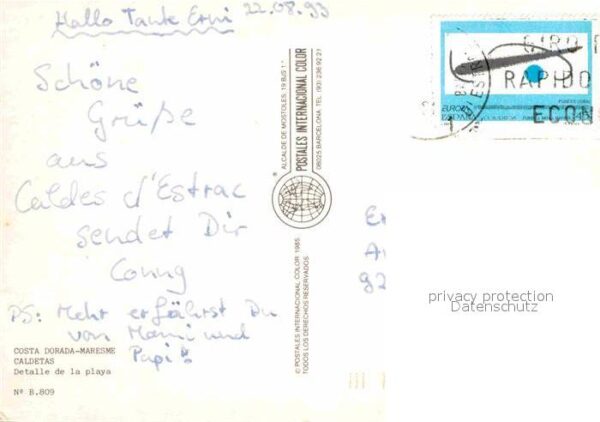 Hallo Tante Erni 22.08.93
Schöne
Grüße
aus
Caldes d'Estrac
sendet Dir
Conny
PS: Mehr erfährst Du
von Mami und
Papi!
COSTA DORADA-MARESME
CALDETAS
Detalle de la playa
Nº B.809
ALCALDE DE MOSTOLES, 19 BJS 1ª
POSTALES INTERNACIONAL COLOR
08025 BARCELONA TEL. (93) 236 92 27
© POSTALES INTERNACIONAL COLOR 1985
TODOS LOS DERECHOS RESERVADOS
GIRO
RAPIDO
ECON
EUROPA
privacy protection
Datenschutz